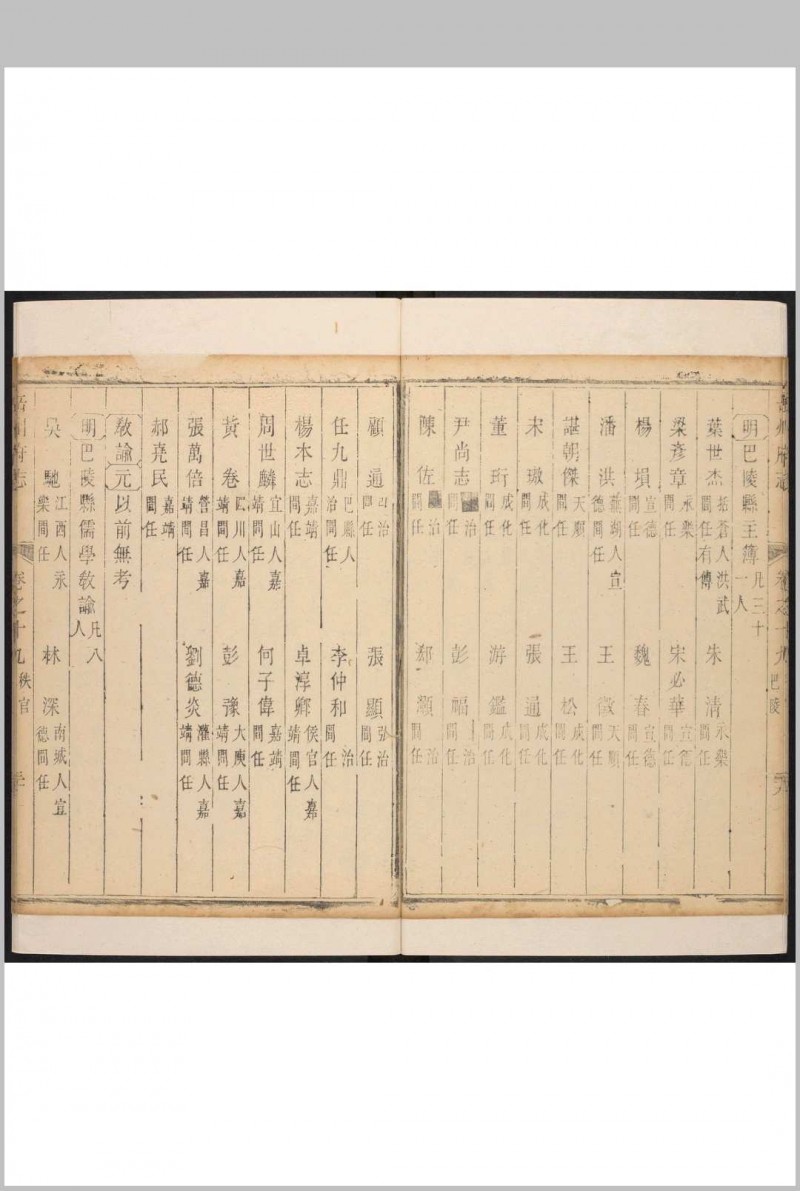 明巴陵縣主簿凡三十一人
葉世杰括蒼人洪武間任有傳 朱清永樂間任
梁彥章永樂間任 宋必華宣德間任
楊塤宣德間任 魏春宣德間任
潘洪蕪湖人宣德間任 王徵天順間任
諶朝傑天順間任 王松成化間任
宋璈成化間任 張通成化間任
董珩成化間任 游鑑成化間任
尹尚志治間任 彭福治間任
陳佐治間任 郄灝治間任
岳州府志 卷之十九 巴陵
顧通弘治間任 張顯弘治間任
任九鼎巴縣人治間任 李仲和治間任
楊本志嘉靖間任 卓淳卿侯官人嘉靖間任
周世麟宜山人嘉靖間任 何子偉嘉靖間任
黃卷四川人嘉靖間任 彭豫大庾人嘉靖間任
張萬倍營昌人嘉靖間任 劉德炎灌縣人嘉靖間任
郝堯民嘉靖間任
教諭元以前無考
明巴陵縣儒學教諭凡八人
吳馳江西人永樂間任 林深南城人宣德間任
岳州府志 卷之十九 秩官